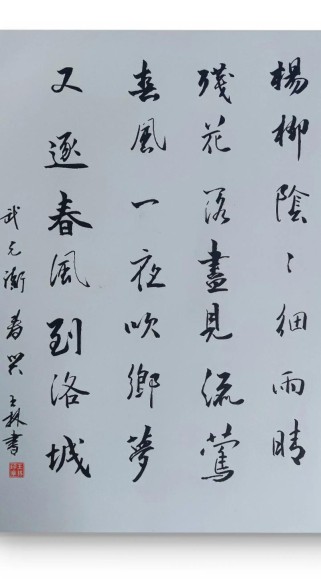 楊柳陰〻細雨晴
殘花落盡見流鶯
春風一夜吹鄉夢
又逐春風到洛城
武元衡春興 王林書